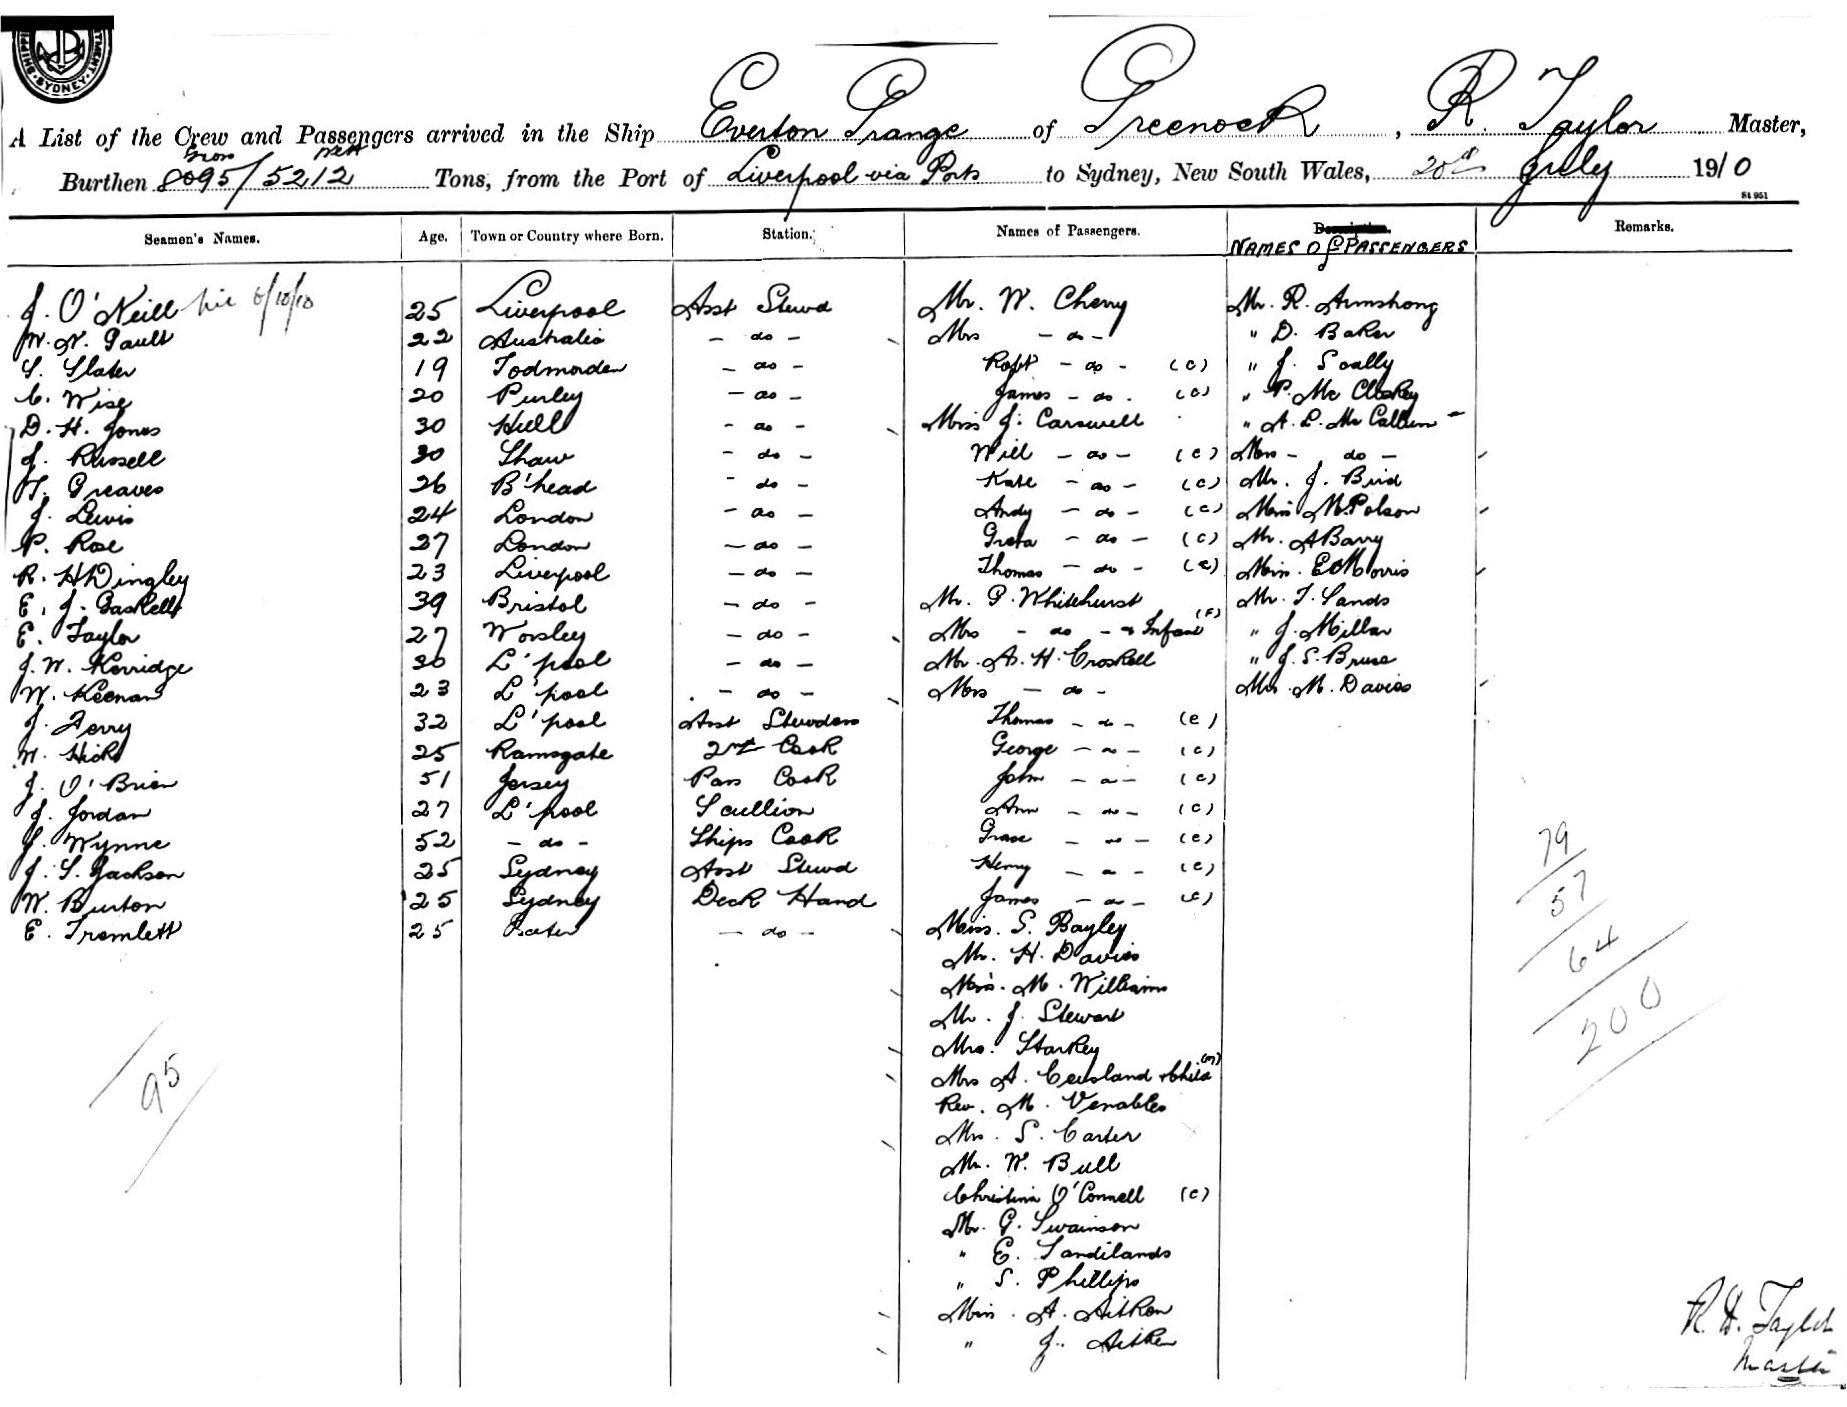 SHIPPING DEPARTMENT. SYDNEY.
A List of the Crew and Passengers arrived in the Ship Everton Grange of Greenock, R. Taylor Master,
Burthen 8095 Gross / 5212 Nett Tons, from the Port of Liverpool via Ports to Sydney, New South Wales, 20th July 1910
St 951
Seamen's Names. Age. Town or Country where Born. Station. Names of Passengers. Description. NAMES OF PASSENGERS Remarks.
J. O'Neill 6/10/10 25 Liverpool Asst Stewd Mr. W. Cherry Mr. R. Armstrong
W. N. Gault 22 Australia - do - Mrs - do - " D. Baker
S. Slater 19 Todmorden - do - Robt - do - (c) " J. Scally
C. Wise 20 Purley - do - James - do - (c) " P. Mc Closkey
D. H. Jones 30 Hull - do - Miss J. Carswell " A. L. Mc Callum
J. Russell 30 Shaw - do - Will - do - (c) Mrs - do -
T. Greaves 26 B'head - do - Kate - do - (c) Mr. J. Bird
J. Lewis 24 London - do - Andy - do - (c) Miss M. Polson
P. Rose 27 London - do - Greta - do - (c) Mr. A Barry
R. H Dingley 23 Liverpool - do - Thomas - do - (c) Miss. E Morris
E. J. Gaskell 39 Bristol - do - Mr. G. Whitehurst Mr. T. Sands
E. Taylor 27 Worsley - do - Mrs - do - & Infant (F) " J. Millar
J. W. Kerridge 30 L'pool - do - Mr. A. H. Croskell " J. S. Bruce
W. Keenan 23 L'pool - do - Mrs - do - Mrs. M. Davies
J. Ferry 32 L'pool Asst Stewdess Thomas - do - (c)
W. Hick 25 Ramsgate 2nd Cook George - do - (c)
J. O'Brien 51 Jersey Pass Cook John - do - (c)
J. Jordan 27 L'pool Scullion Ann - do - (c)
J. Wynne 52 - do - Ships Cook Grace - do - (c)
J. S. Jackson 25 Sydney Asst Stewd Henry - do - (c)
W. Burton 25 Sydney Deck Hand James - do - (c)
E. Tremlett 25 - do - Miss. S. Bayley
Mr. H. Davies
Miss. M. Williams
Mr. J. Stewart
Mrs. Starkey
Mrs A. Cousland & Child (m)
Rev. M. Venables
Mrs. S. Carter
Mr. W. Bull
Christina O'Connell (c)
Mr. G. Swainson
" E. Sandilands
" S. Phillips
Miss. A. Aitken
" J. Aitken
95
79
57
64
200
R. H. Taylor
Master